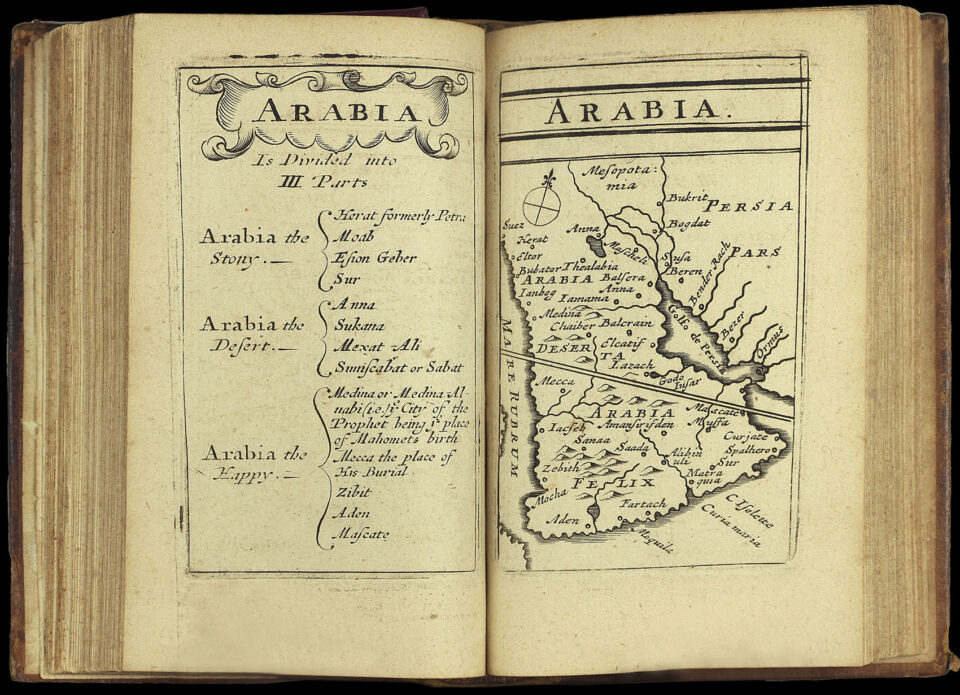 ARABIA
Is Divided into
III Parts
Arabia the
Stony.
Herat formerly Petra
Moab
Esion Geber
Sur
Arabia the
Desert.
Anna
Sukana
Mexat Ali
Sumiscabat or Sabat
Arabia the
Happy.
Medina or Medina Al-
nabi (i.e. yᵉ City of the
Prophet being yᵉ place
of Mahomets birth
Mecca the place of
His Burial.
Zibit
Aden
Mascate
ARABIA.
Mesopota:
mia
Bukrit
PERSIA
Bogdat
Suez
Herat
Anna
Eltor
Mascheli
Susa
PARS
Bubator
Thealabia
Beren
Bender Rach
ARABIA
Balsera
Ianbog
Anna
Iamama
Medina
Chaiber
Balcrain
Golfo de Persia
Bezer
Ormus
DESER
TA
Elcatif
Lazach
MARE RUBRUM
Mecca
Godo
Iusar
ARABIA
Mascate
Amansirifden
Muffa
Iacseh
Sanaa
Saada
Alibin
uli
Curjate
Spalhero
Sur
Zebith
Matra
quia
FELIX
Mocha
Fartach
Aden
Moquila
C Isolette
Curia maria